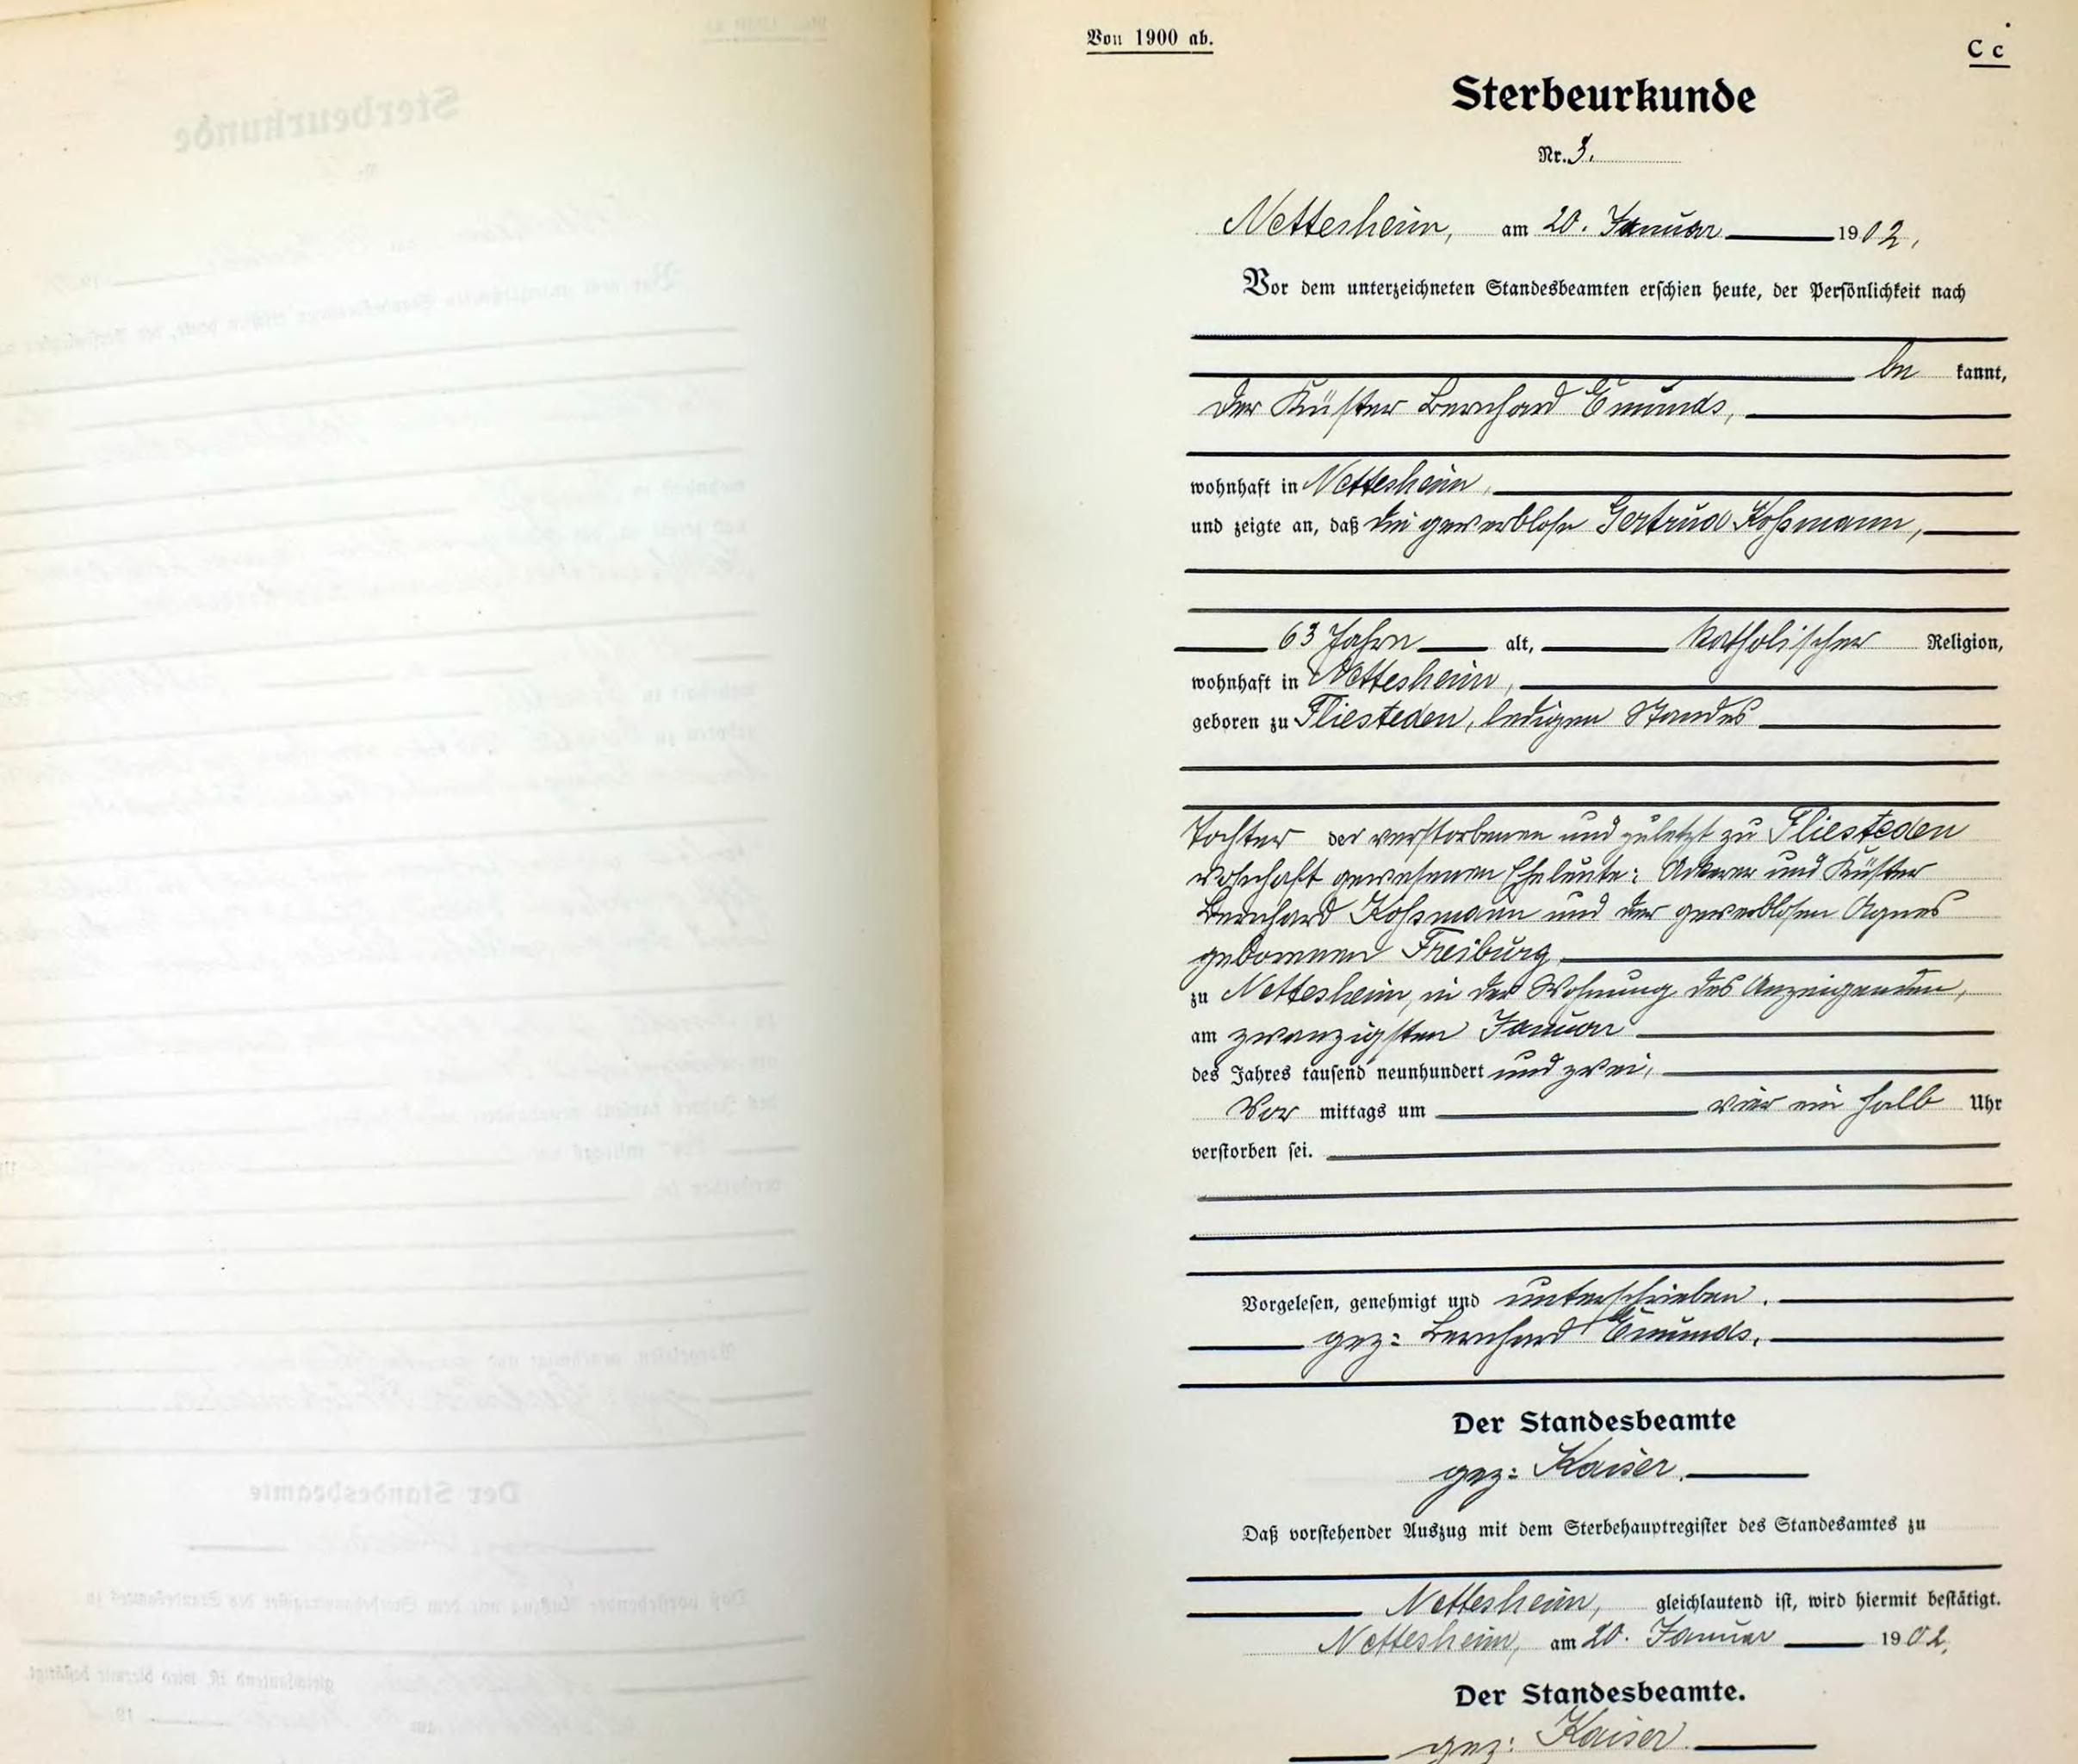 Von 1900 ab.
C c
Sterbeurkunde
Nr. 3.
Nettesheim, am 20. Januar 1902,
Vor dem unterzeichneten Standesbeamten erschien heute, der Persönlichkeit nach
be kannt,
der Küster Bernhard Emunds,
wohnhaft in Nettesheim,
und zeigte an, daß die gewerblose Gertrud Koßmann,
63 Jahre alt, katholischer Religion,
wohnhaft in Nettesheim,
geboren zu Fliesteden, ledigen Standes
Tochter der verstorbenen und zuletzt zu Fliesteden
wohnhaft gewesenen Eheleute: Ackerer und Küster
Bernhard Koßmann und der gewerblosen Agnes
geborenen Freiburg
zu Nettesheim, in der Wohnung des Anzeigenden,
am zwanzigsten Januar
des Jahres tausend neunhundert und zwei,
Vor mittags um vier ein halb Uhr
verstorben sei.
Vorgelesen, genehmigt und unterschrieben.
gez: Bernhard Emunds.
Der Standesbeamte
gez: Kaiser.
Daß vorstehender Auszug mit dem Sterbehauptregister des Standesamtes zu
Nettesheim, gleichlautend ist, wird hiermit bestätigt.
Nettesheim, am 20. Januar 1902.
Der Standesbeamte.
gez: Kaiser.